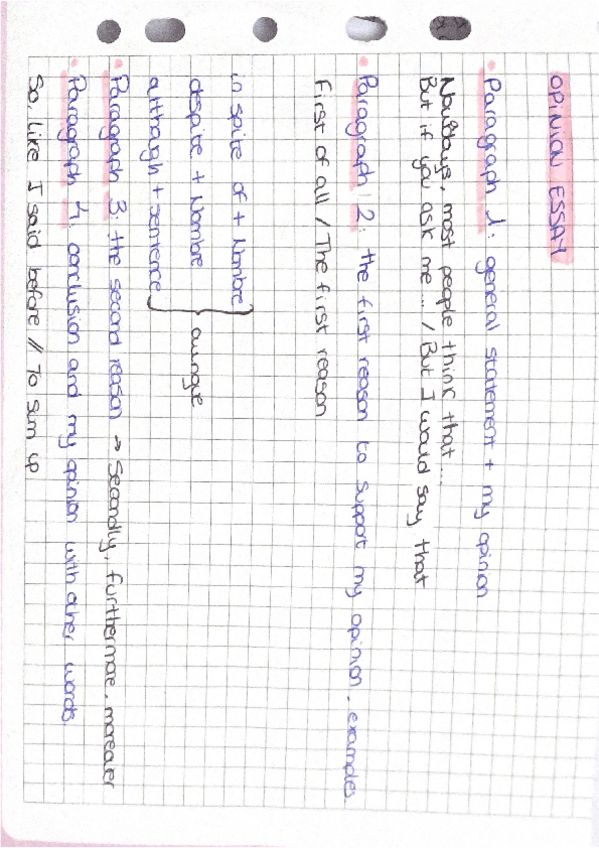 OPINION ESSAY
• Paragraph 1: general statement + my opinion
Nowadays, most people think that...
But if you ask me... / But I would say that
• Paragraph 2: the first reason to support my opinion, examples.
First of all / The first reason
in spite of + Nombre
despite + Nombre
although + sentence
aunque
• Paragraph 3: the second reason → Secondly, furthermore, moreover
• Paragraph 4: conclusion and my opinion with other words.
So, like I said before // To sum up